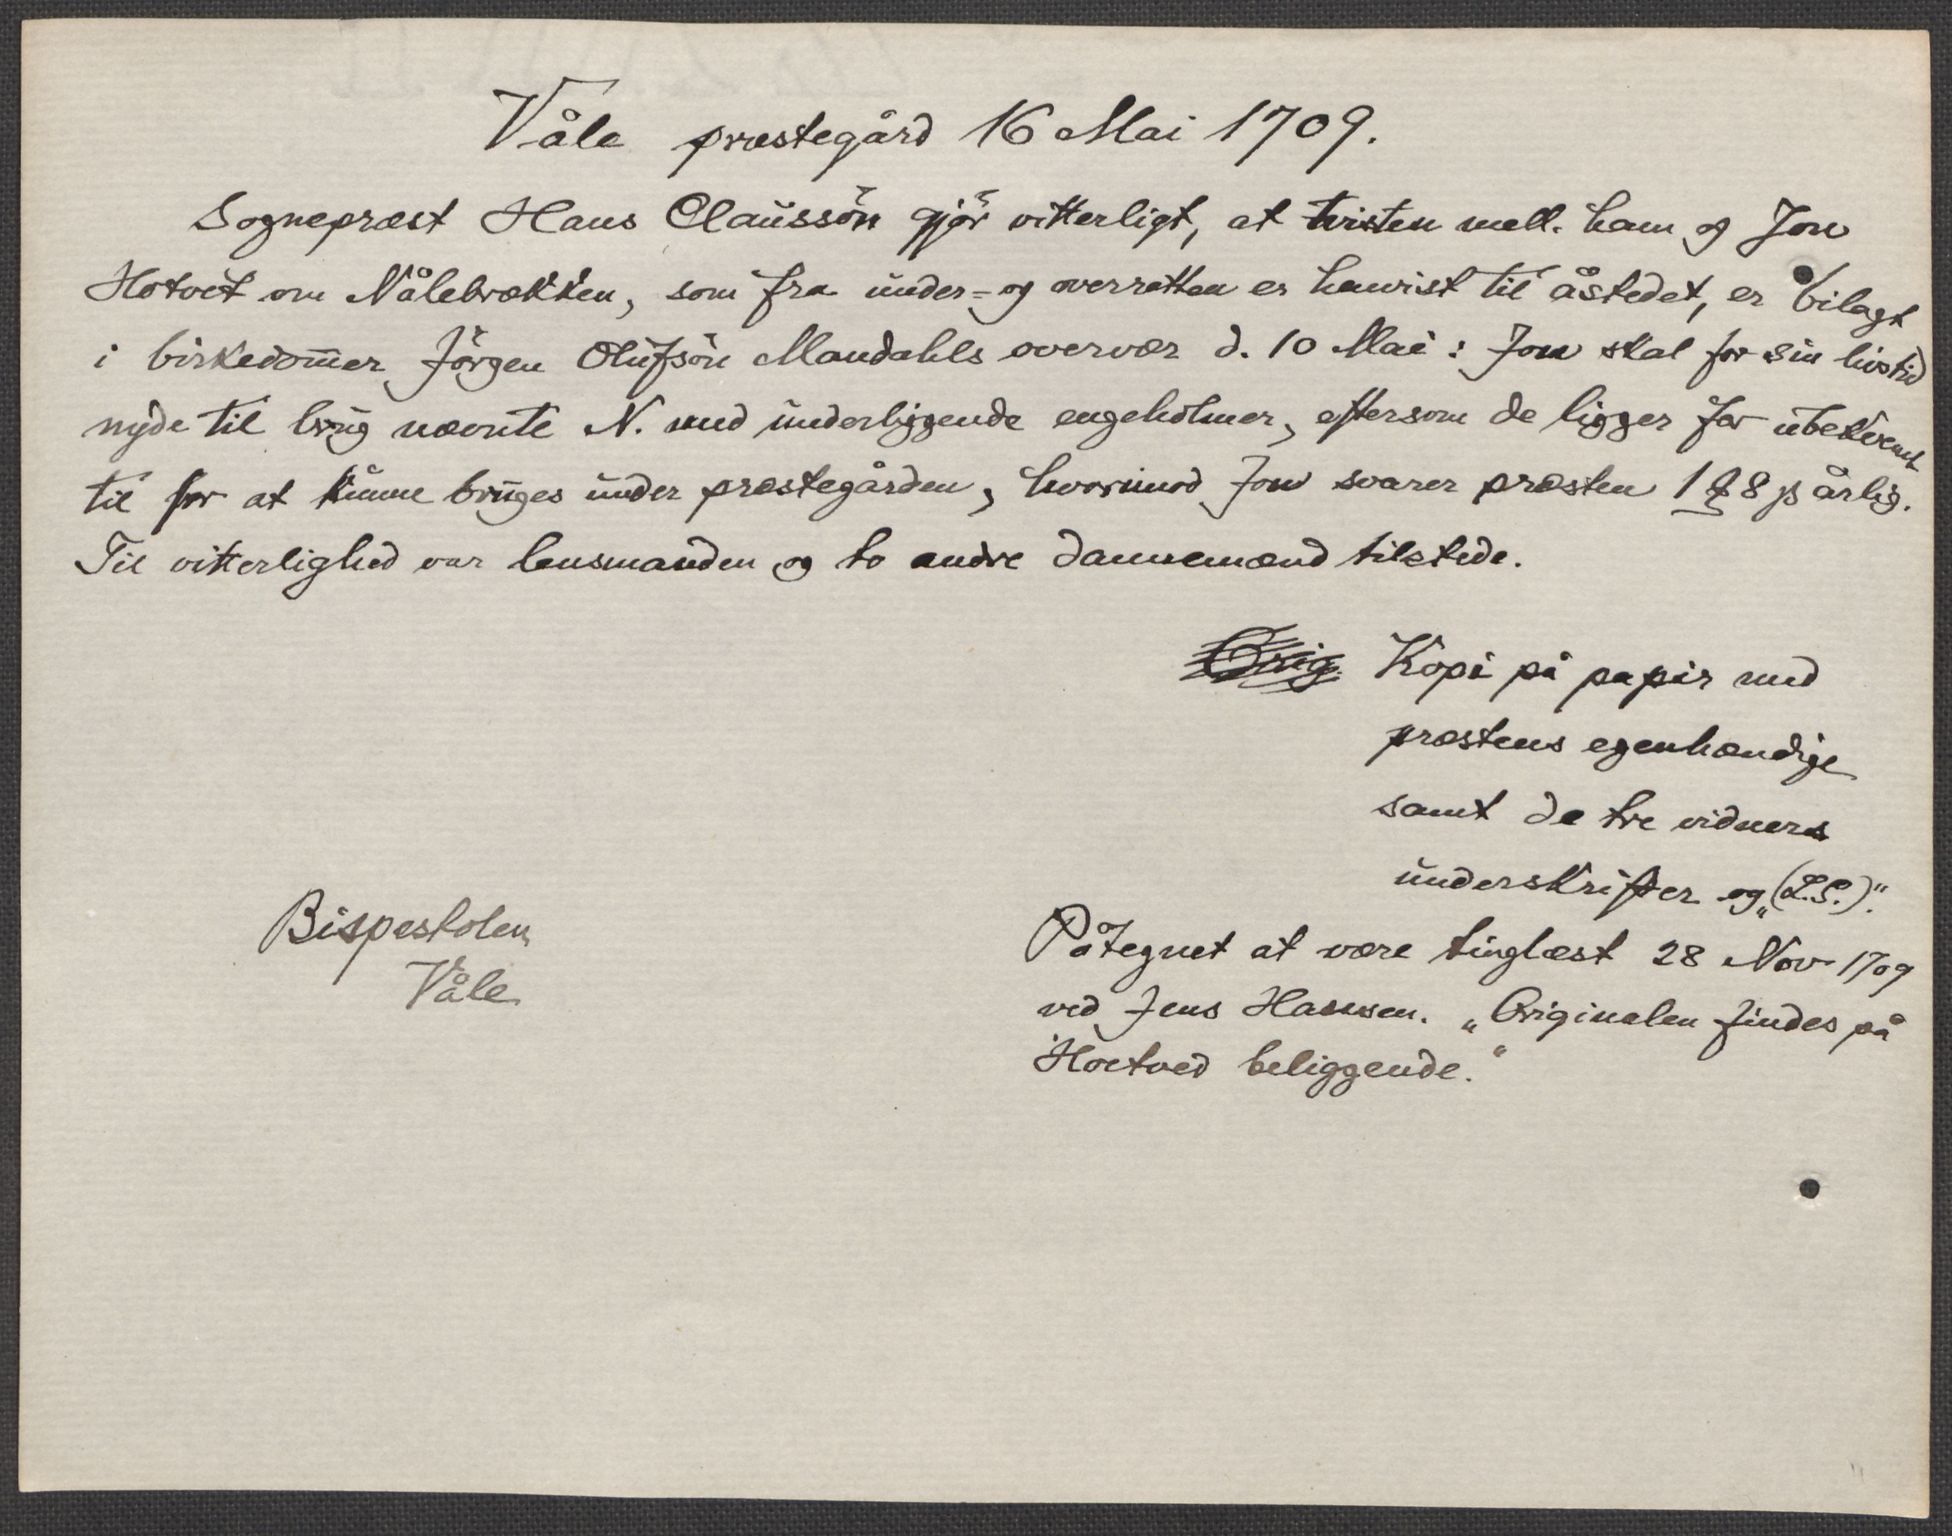 Våle præstegård 16 Mai 1709.
Sognepræst Hans Claussön gjör vitterligt, at tvisten mell. ham og Jon
Hotvet om Nålebrækken, som fra under- og overretten er henvist til åstedet, er bilagt
i birkedom̄er Jörgen Olufsön Mandahls overvær d. 10 Mai: Jon skal for sin livstid
nyde til brug nævnte N. med underliggende engeholmer, eftersom de ligger for ubekvemt
til for at kunne bruges under præstegården, hvorimod Jon svarer præsten 1 8 β årlig.
Til vitterlighed var lensmanden og to andre dannemænd tilstede.
Orig. Kopi på papir med
præstens egenhændige
samt de tre vidners
underskrifter og „(L.S.)“.
Påtegnet at være tinglæst 28 Nov 1709
ved Jens Hansen. „Originalen findes på
Hoetved beliggende.“
Bispestolen
Våle